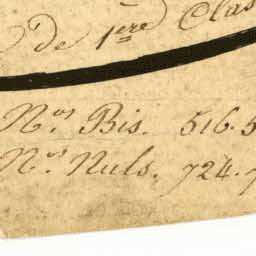 de 1ère Clas
Nos Bis. 516.5
Nos Nuls. 724.7